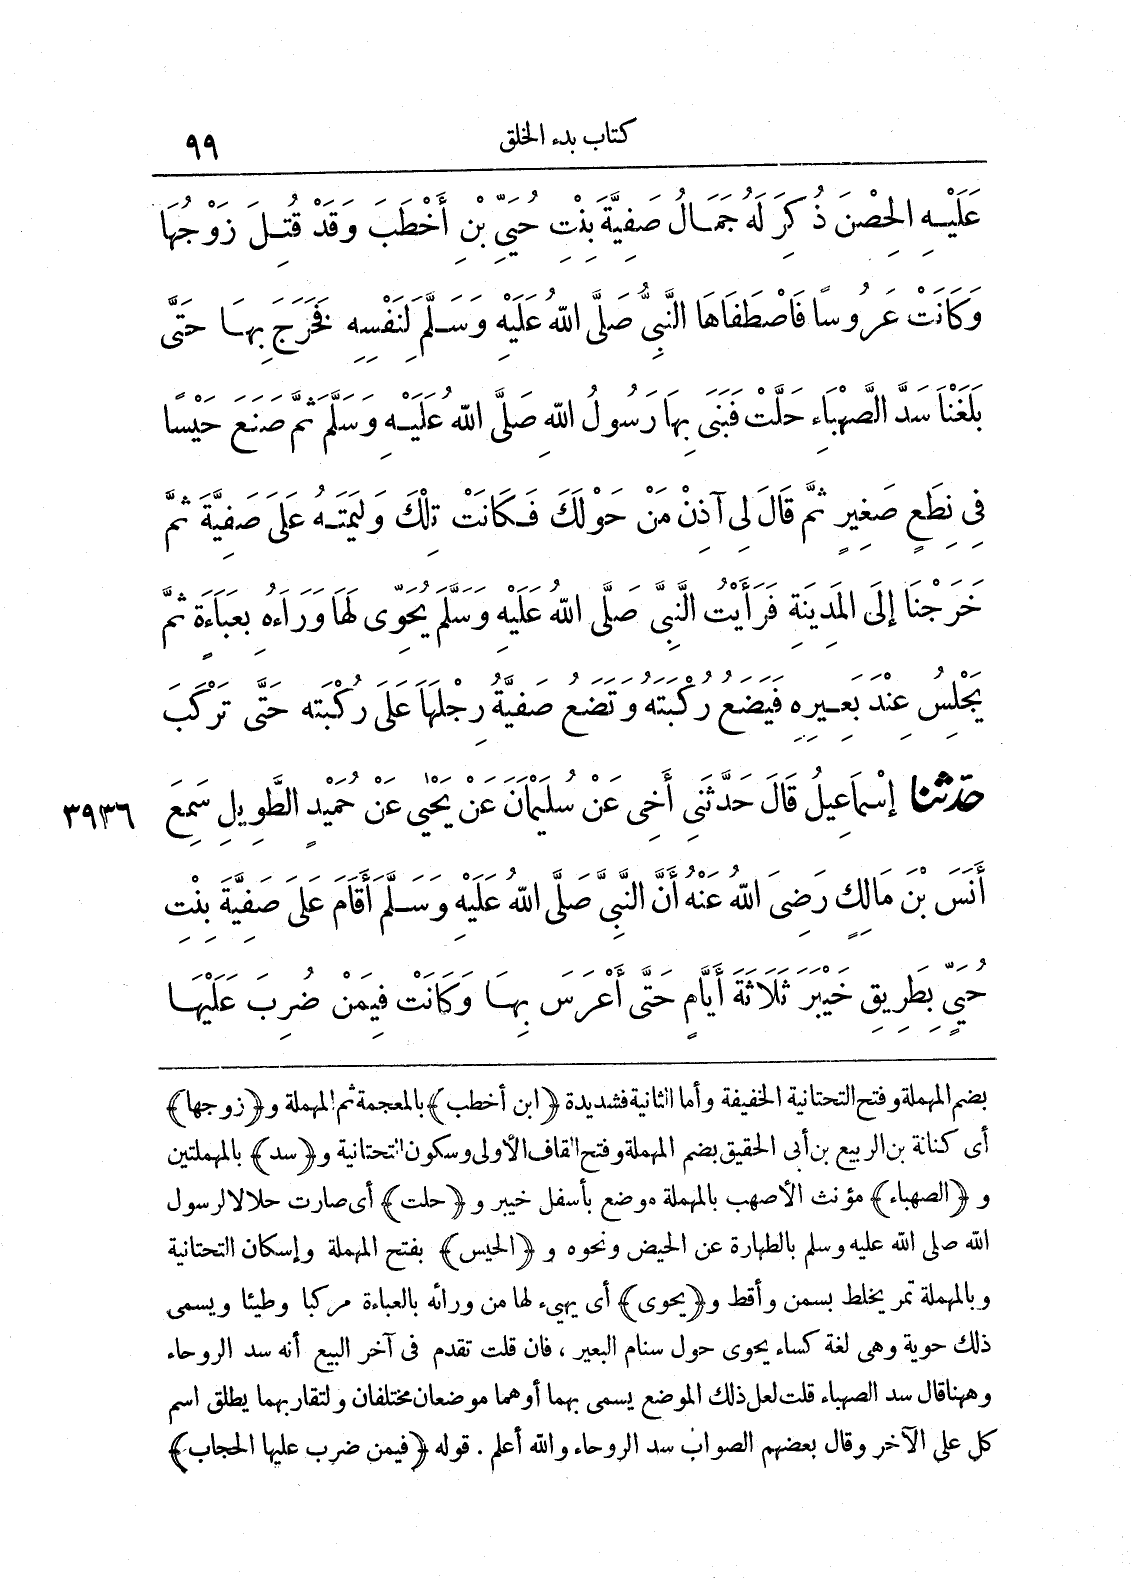 كتاب بدء الخلق ٩٩
عَلَيْهِ الحِصْنَ ذُكِرَ لَهُ جَمَالُ صَفِيَّةَ بِنْتِ حُيَيِّ بْنِ أَخْطَبَ وَقَدْ قُتِلَ زَوْجُهَا
وَكَانَتْ عَرُوسًا فَاصْطَفَاهَا النَّبِيُّ صَلَّى اللهُ عَلَيْهِ وَسَلَّمَ لِنَفْسِهِ فَخَرَجَ بِهَا حَتَّى
بَلَغْنَا سَدَّ الصَّهْبَاءِ حَلَّتْ فَبَنَى بِهَا رَسُولُ اللهِ صَلَّى اللهُ عَلَيْهِ وَسَلَّمَ ثُمَّ صَنَعَ حَيْسًا
فِى نِطَعٍ صَغِيرٍ ثُمَّ قَالَ لِى آذِنْ مَنْ حَوْلَكَ فَكَانَتْ تِلْكَ وَلِيمَتَهُ عَلَى صَفِيَّةَ ثُمَّ
خَرَجْنَا إِلَى المَدِينَةِ فَرَأَيْتُ النَّبِيَّ صَلَّى اللهُ عَلَيْهِ وَسَلَّمَ يُحَوِّى لَهَا وَرَاءَهُ بِعَبَاءَةٍ ثُمَّ
يَجْلِسُ عِنْدَ بَعِيرِهِ فَيَضَعُ رُكْبَتَهُ وَتَضَعُ صَفِيَّةُ رِجْلَهَا عَلَى رُكْبَتِهِ حَتَّى تَرْكَبَ
حدثنا إِسْمَاعِيلُ قَالَ حَدَّثَنِى أَخِى عَنْ سُلَيْمَانَ عَنْ يَحْيَى عَنْ حُمَيْدٍ الطَّوِيلِ سَمِعَ ٣٩٣٦
أَنَسَ بْنَ مَالِكٍ رَضِىَ اللهُ عَنْهُ أَنَّ النَّبِيَّ صَلَّى اللهُ عَلَيْهِ وَسَلَّمَ أَقَامَ عَلَى صَفِيَّةَ بِنْتِ
حُيَيٍّ بِطَرِيقِ خَيْبَرَ ثَلَاثَةَ أَيَّامٍ حَتَّى أَعْرَسَ بِهَا وَكَانَتْ فِيمَنْ ضُرِبَ عَلَيْهَا
بضم المهملة وفتح التحتانية الخفيفة وأما الثانية فشديدة ﴿ابن أخطب﴾ بالمعجمة ثم المهملة و﴿زوجها﴾
أى كنانة بن الربيع بن أبى الحقيق بضم المهملة وفتح القاف الأولى وسكون التحتانية و﴿سد﴾ بالمهملتين
و ﴿الصهباء﴾ مؤنث الأصهب بالمهملة موضع بأسفل خيبر و ﴿حلت﴾ أى صارت حلالا لرسول
الله صلى الله عليه وسلم بالطهارة عن الحيض ونحوه و ﴿الحيس﴾ بفتح المهملة وإسكان التحتانية
وبالمهملة تمر يخلط بسمن وأقط و﴿يحوى﴾ أى يهيء لها من ورائه بالعباءة مركبا وطيئا ويسمى
ذلك حوية وهى لغة كساء يحوى حول سنام البعير ، فان قلت تقدم فى آخر البيع أنه سد الروحاء
وههنا قال سد الصهباء قلت لعل ذلك الموضع يسمى بهما أو هما موضعان مختلفان ولتقاربهما يطلق اسم
كل على الآخر وقال بعضهم الصواب سد الروحاء والله أعلم . قوله ﴿فيمن ضرب عليها الحجاب﴾